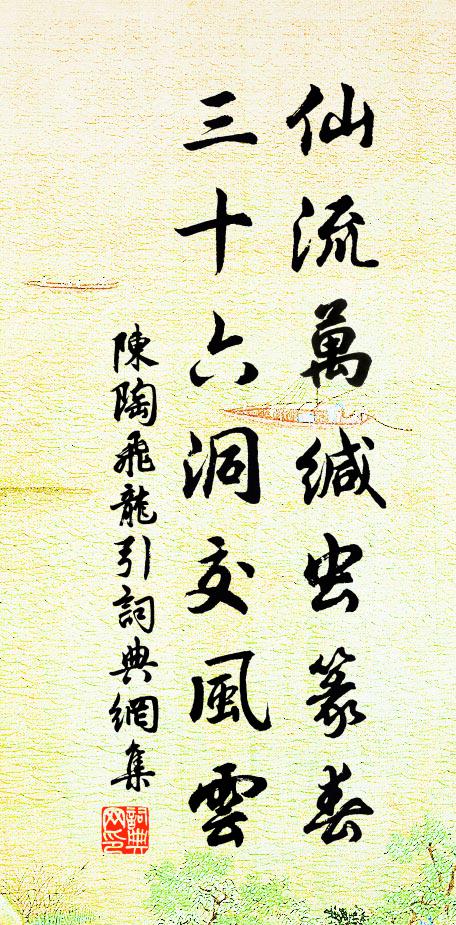 仙流萬緘虫篆春
三十六洞交風雲
陳陶飛龍引詞典網集
詞典网印